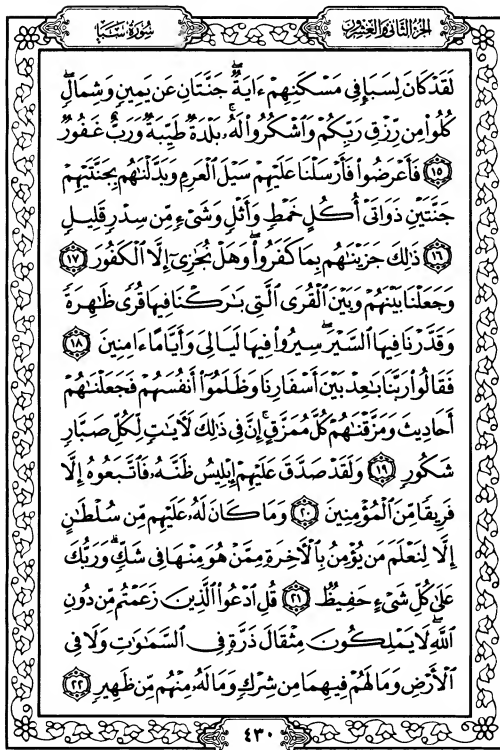 سُورَةُ سَبَإٍ
الجُزْءُ الثَّانِي وَالْعِشْرُونَ
لَقَدْ كَانَ لِسَبَإٍ فِي مَسْكَنِهِمْ ءَايَةٌ ۖ جَنَّتَانِ عَن يَمِينٍ وَشِمَالٍ ۖ
كُلُوا۟ مِن رِّزْقِ رَبِّكُمْ وَٱشْكُرُوا۟ لَهُۥ ۚ بَلْدَةٌ طَيِّبَةٌ وَرَبٌّ غَفُورٌ
١٥ فَأَعْرَضُوا۟ فَأَرْسَلْنَا عَلَيْهِمْ سَيْلَ ٱلْعَرِمِ وَبَدَّلْنَٰهُم بِجَنَّتَيْهِمْ
جَنَّتَيْنِ ذَوَاتَىْ أُكُلٍ خَمْطٍ وَأَثْلٍ وَشَىْءٍ مِّن سِدْرٍ قَلِيلٍ
١٦ ذَٰلِكَ جَزَيْنَٰهُم بِمَا كَفَرُوا۟ ۖ وَهَلْ نُجَٰزِىٓ إِلَّا ٱلْكَفُورَ ١٧
وَجَعَلْنَا بَيْنَهُمْ وَبَيْنَ ٱلْقُرَى ٱلَّتِى بَٰرَكْنَا فِيهَا قُرًى ظَٰهِرَةً
وَقَدَّرْنَا فِيهَا ٱلسَّيْرَ ۖ سِيرُوا۟ فِيهَا لَيَالِىَ وَأَيَّامًا ءَامِنِينَ ١٨
فَقَالُوا۟ رَبَّنَا بَٰعِدْ بَيْنَ أَسْفَارِنَا وَظَلَمُوٓا۟ أَنفُسَهُمْ فَجَعَلْنَٰهُمْ
أَحَادِيثَ وَمَزَّقْنَٰهُمْ كُلَّ مُمَزَّقٍ ۚ إِنَّ فِى ذَٰلِكَ لَءَايَٰتٍ لِّكُلِّ صَبَّارٍ
شَكُورٍ ١٩ وَلَقَدْ صَدَّقَ عَلَيْهِمْ إِبْلِيسُ ظَنَّهُۥ فَٱتَّبَعُوهُ إِلَّا
فَرِيقًا مِّنَ ٱلْمُؤْمِنِينَ ٢٠ وَمَا كَانَ لَهُۥ عَلَيْهِم مِّن سُلْطَٰنٍ
إِلَّا لِنَعْلَمَ مَن يُؤْمِنُ بِٱلْءَاخِرَةِ مِمَّنْ هُوَ مِنْهَا فِى شَكٍّ ۗ وَرَبُّكَ
عَلَىٰ كُلِّ شَىْءٍ حَفِيظٌ ٢١ قُلِ ٱدْعُوا۟ ٱلَّذِينَ زَعَمْتُم مِّن دُونِ
ٱللَّهِ ۖ لَا يَمْلِكُونَ مِثْقَالَ ذَرَّةٍ فِى ٱلسَّمَٰوَٰتِ وَلَا فِى
ٱلْأَرْضِ وَمَا لَهُمْ فِيهِمَا مِن شِرْكٍ وَمَا لَهُۥ مِنْهُم مِّن ظَهِيرٍ ٢٢
٤٣٠